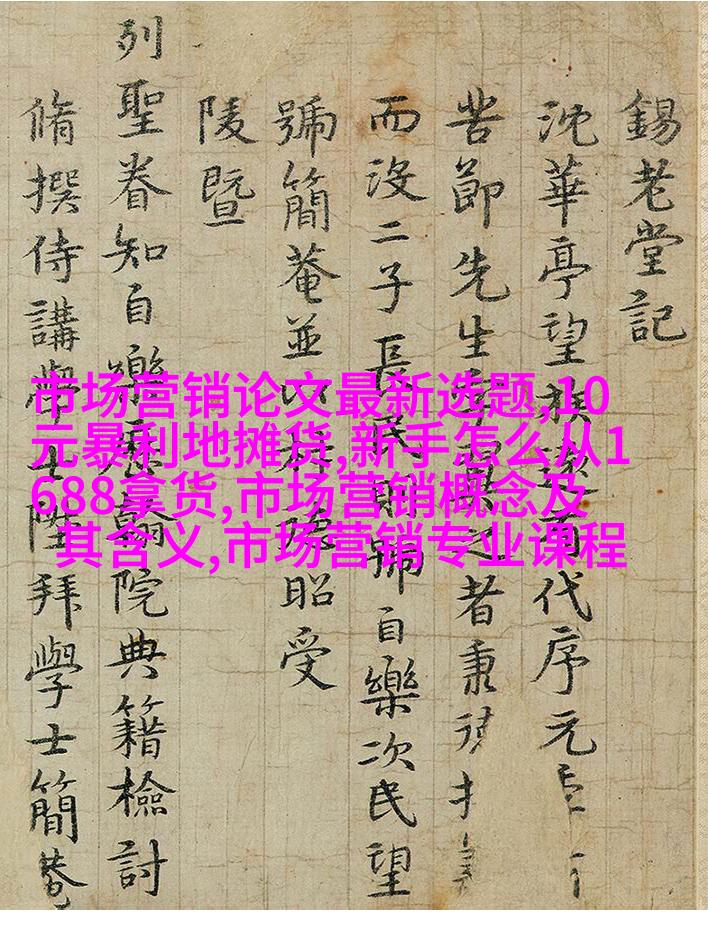 錫老堂記
沈華亭望族有代序元
苦節先生之者秉
而没二子長民則號自樂次民望
號簡菴並以昭受
陵暨
列聖眷知自樂翰院典籍檢討
脩撰侍講學士陞拜學士簡菴
市场营销论文最新选题,10
元暴利地摊货,新手怎么从1
688拿货,市场营销概念及
其含义,市场营销专业课程